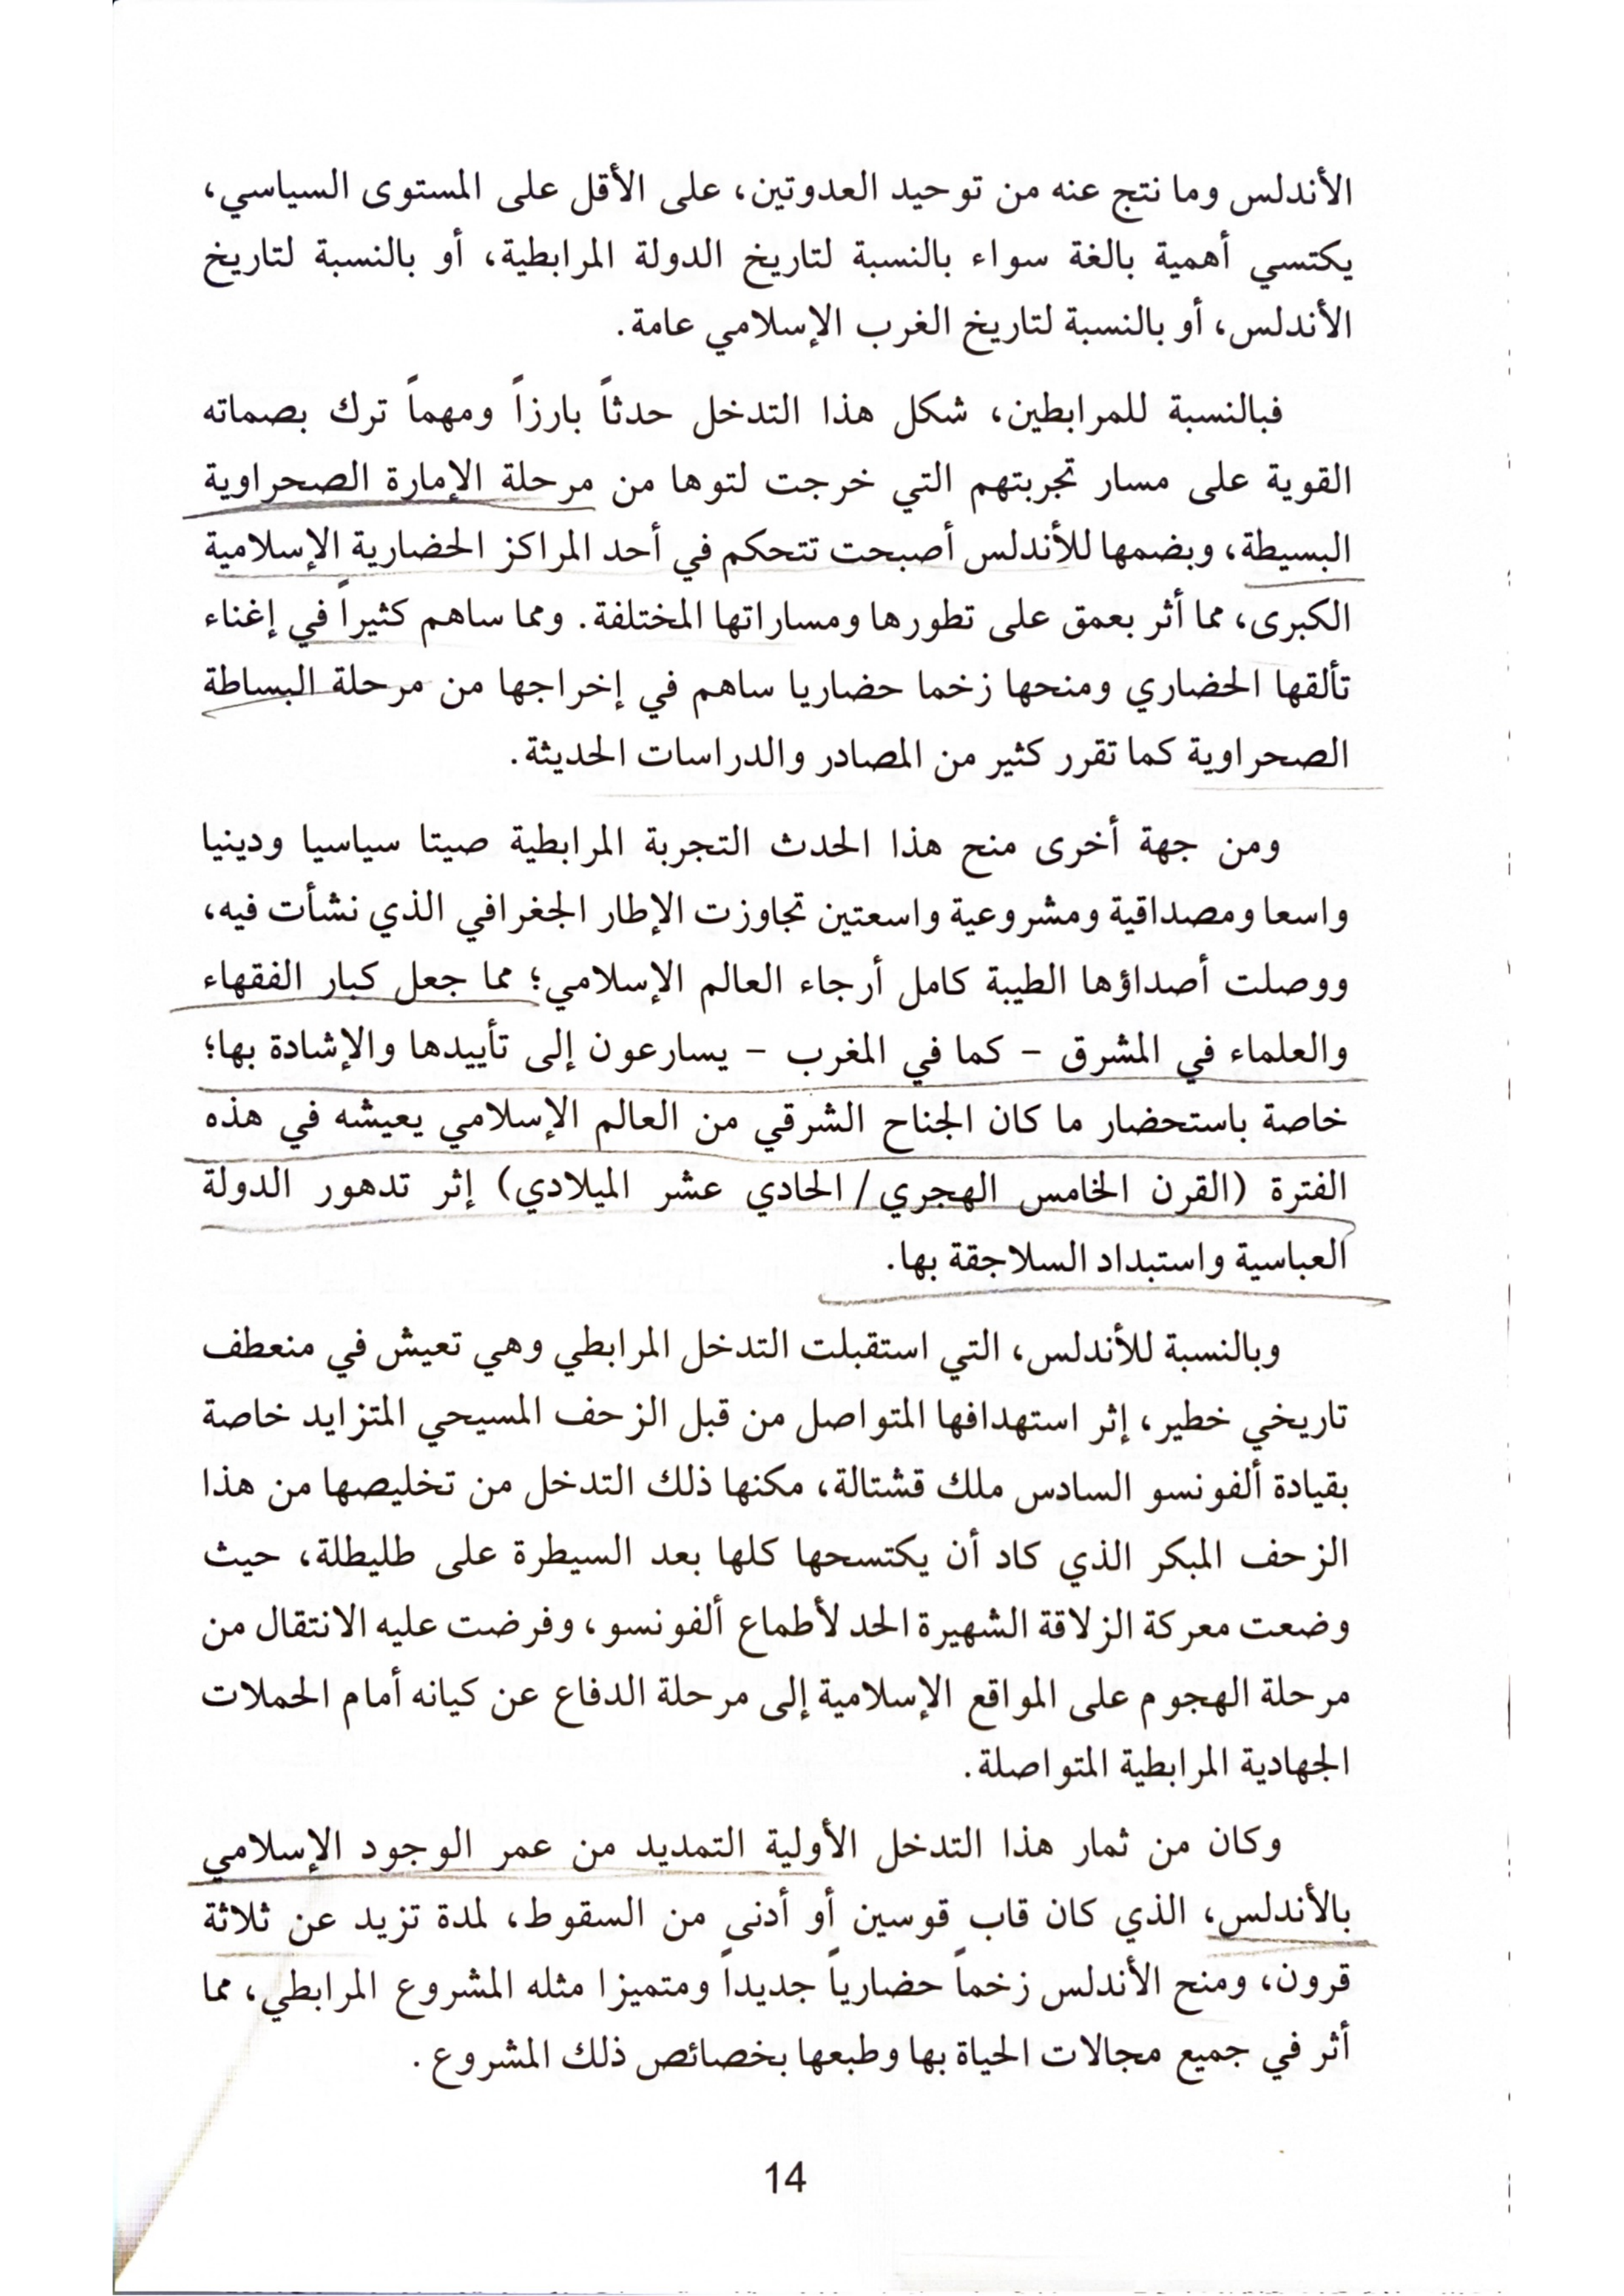 الأندلس وما نتج عنه من توحيد العدوتين، على الأقل على المستوى السياسي،
يكتسي أهمية بالغة سواء بالنسبة لتاريخ الدولة المرابطية، أو بالنسبة لتاريخ
الأندلس، أو بالنسبة لتاريخ الغرب الإسلامي عامة.
فبالنسبة للمرابطين، شكل هذا التدخل حدثاً بارزاً ومهماً ترك بصماته
القوية على مسار تجربتهم التي خرجت لتوها من مرحلة الإمارة الصحراوية
البسيطة، وبضمها للأندلس أصبحت تتحكم في أحد المراكز الحضارية الإسلامية
الكبرى، مما أثر بعمق على تطورها ومساراتها المختلفة. ومما ساهم كثيراً في إغناء
تألقها الحضاري ومنحها زخما حضاريا ساهم في إخراجها من مرحلة البساطة
الصحراوية كما تقرر كثير من المصادر والدراسات الحديثة.
ومن جهة أخرى منح هذا الحدث التجربة المرابطية صيتا سياسيا ودينيا
واسعا ومصداقية ومشروعية واسعتين تجاوزت الإطار الجغرافي الذي نشأت فيه،
ووصلت أصداؤها الطيبة كامل أرجاء العالم الإسلامي؛ مما جعل كبار الفقهاء
والعلماء في المشرق - كما في المغرب - يسارعون إلى تأييدها والإشادة بها؛
خاصة باستحضار ما كان الجناح الشرقي من العالم الإسلامي يعيشه في هذه
الفترة (القرن الخامس الهجري/ الحادي عشر الميلادي) إثر تدهور الدولة
العباسية واستبداد السلاجقة بها.
وبالنسبة للأندلس، التي استقبلت التدخل المرابطي وهي تعيش في منعطف
تاريخي خطير، إثر استهدافها المتواصل من قبل الزحف المسيحي المتزايد خاصة
بقيادة ألفونسو السادس ملك قشتالة، مكنها ذلك التدخل من تخليصها من هذا
الزحف المبكر الذي كاد أن يكتسحها كلها بعد السيطرة على طليطلة، حيث
وضعت معركة الزلاقة الشهيرة الحد لأطماع ألفونسو، وفرضت عليه الانتقال من
مرحلة الهجوم على المواقع الإسلامية إلى مرحلة الدفاع عن كيانه أمام الحملات
الجهادية المرابطية المتواصلة.
وكان من ثمار هذا التدخل الأولية التمديد من عمر الوجود الإسلامي
بالأندلس، الذي كان قاب قوسين أو أدنى من السقوط، لمدة تزيد عن ثلاثة
قرون، ومنح الأندلس زخماً حضارياً جديداً ومتميزا مثله المشروع المرابطي، مما
أثر في جميع مجالات الحياة بها وطبعها بخصائص ذلك المشروع.
14